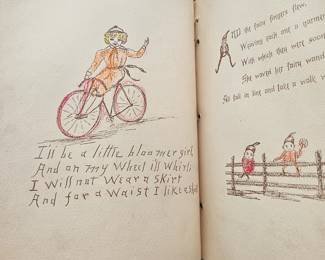 I'll be a little bloomer girl,
And on my Wheel I'll Whirl,
I Will not Wear a skirt
And for a Waist I like a shirt
All the fairy fingers flew,
Weaving each one a garment
With which they were soon
She waved her fairy wand
So fall in line and take a walk